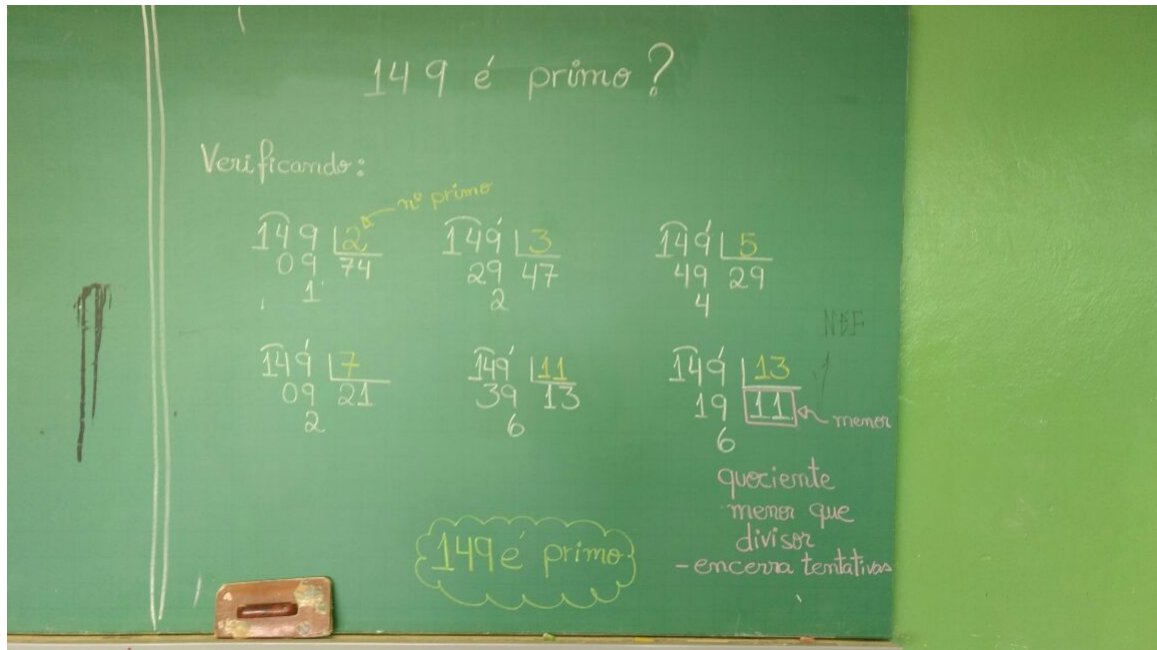 149 é primo?
Verificando:
nº primo
149 2
09 74
1
149 3
29 47
2
149 5
49 29
4
149 7
09 21
2
149 11
39 13
6
149 13
19 11 menor
6
quociente
menor que
divisor
- encerra tentativas
149 é primo